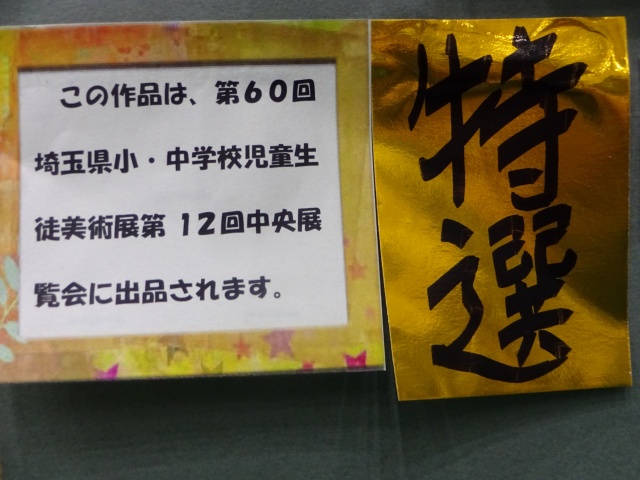 この作品は、第60回
埼玉県小・中学校児童生
徒美術展第12回中央展
覧会に出品されます。
特選